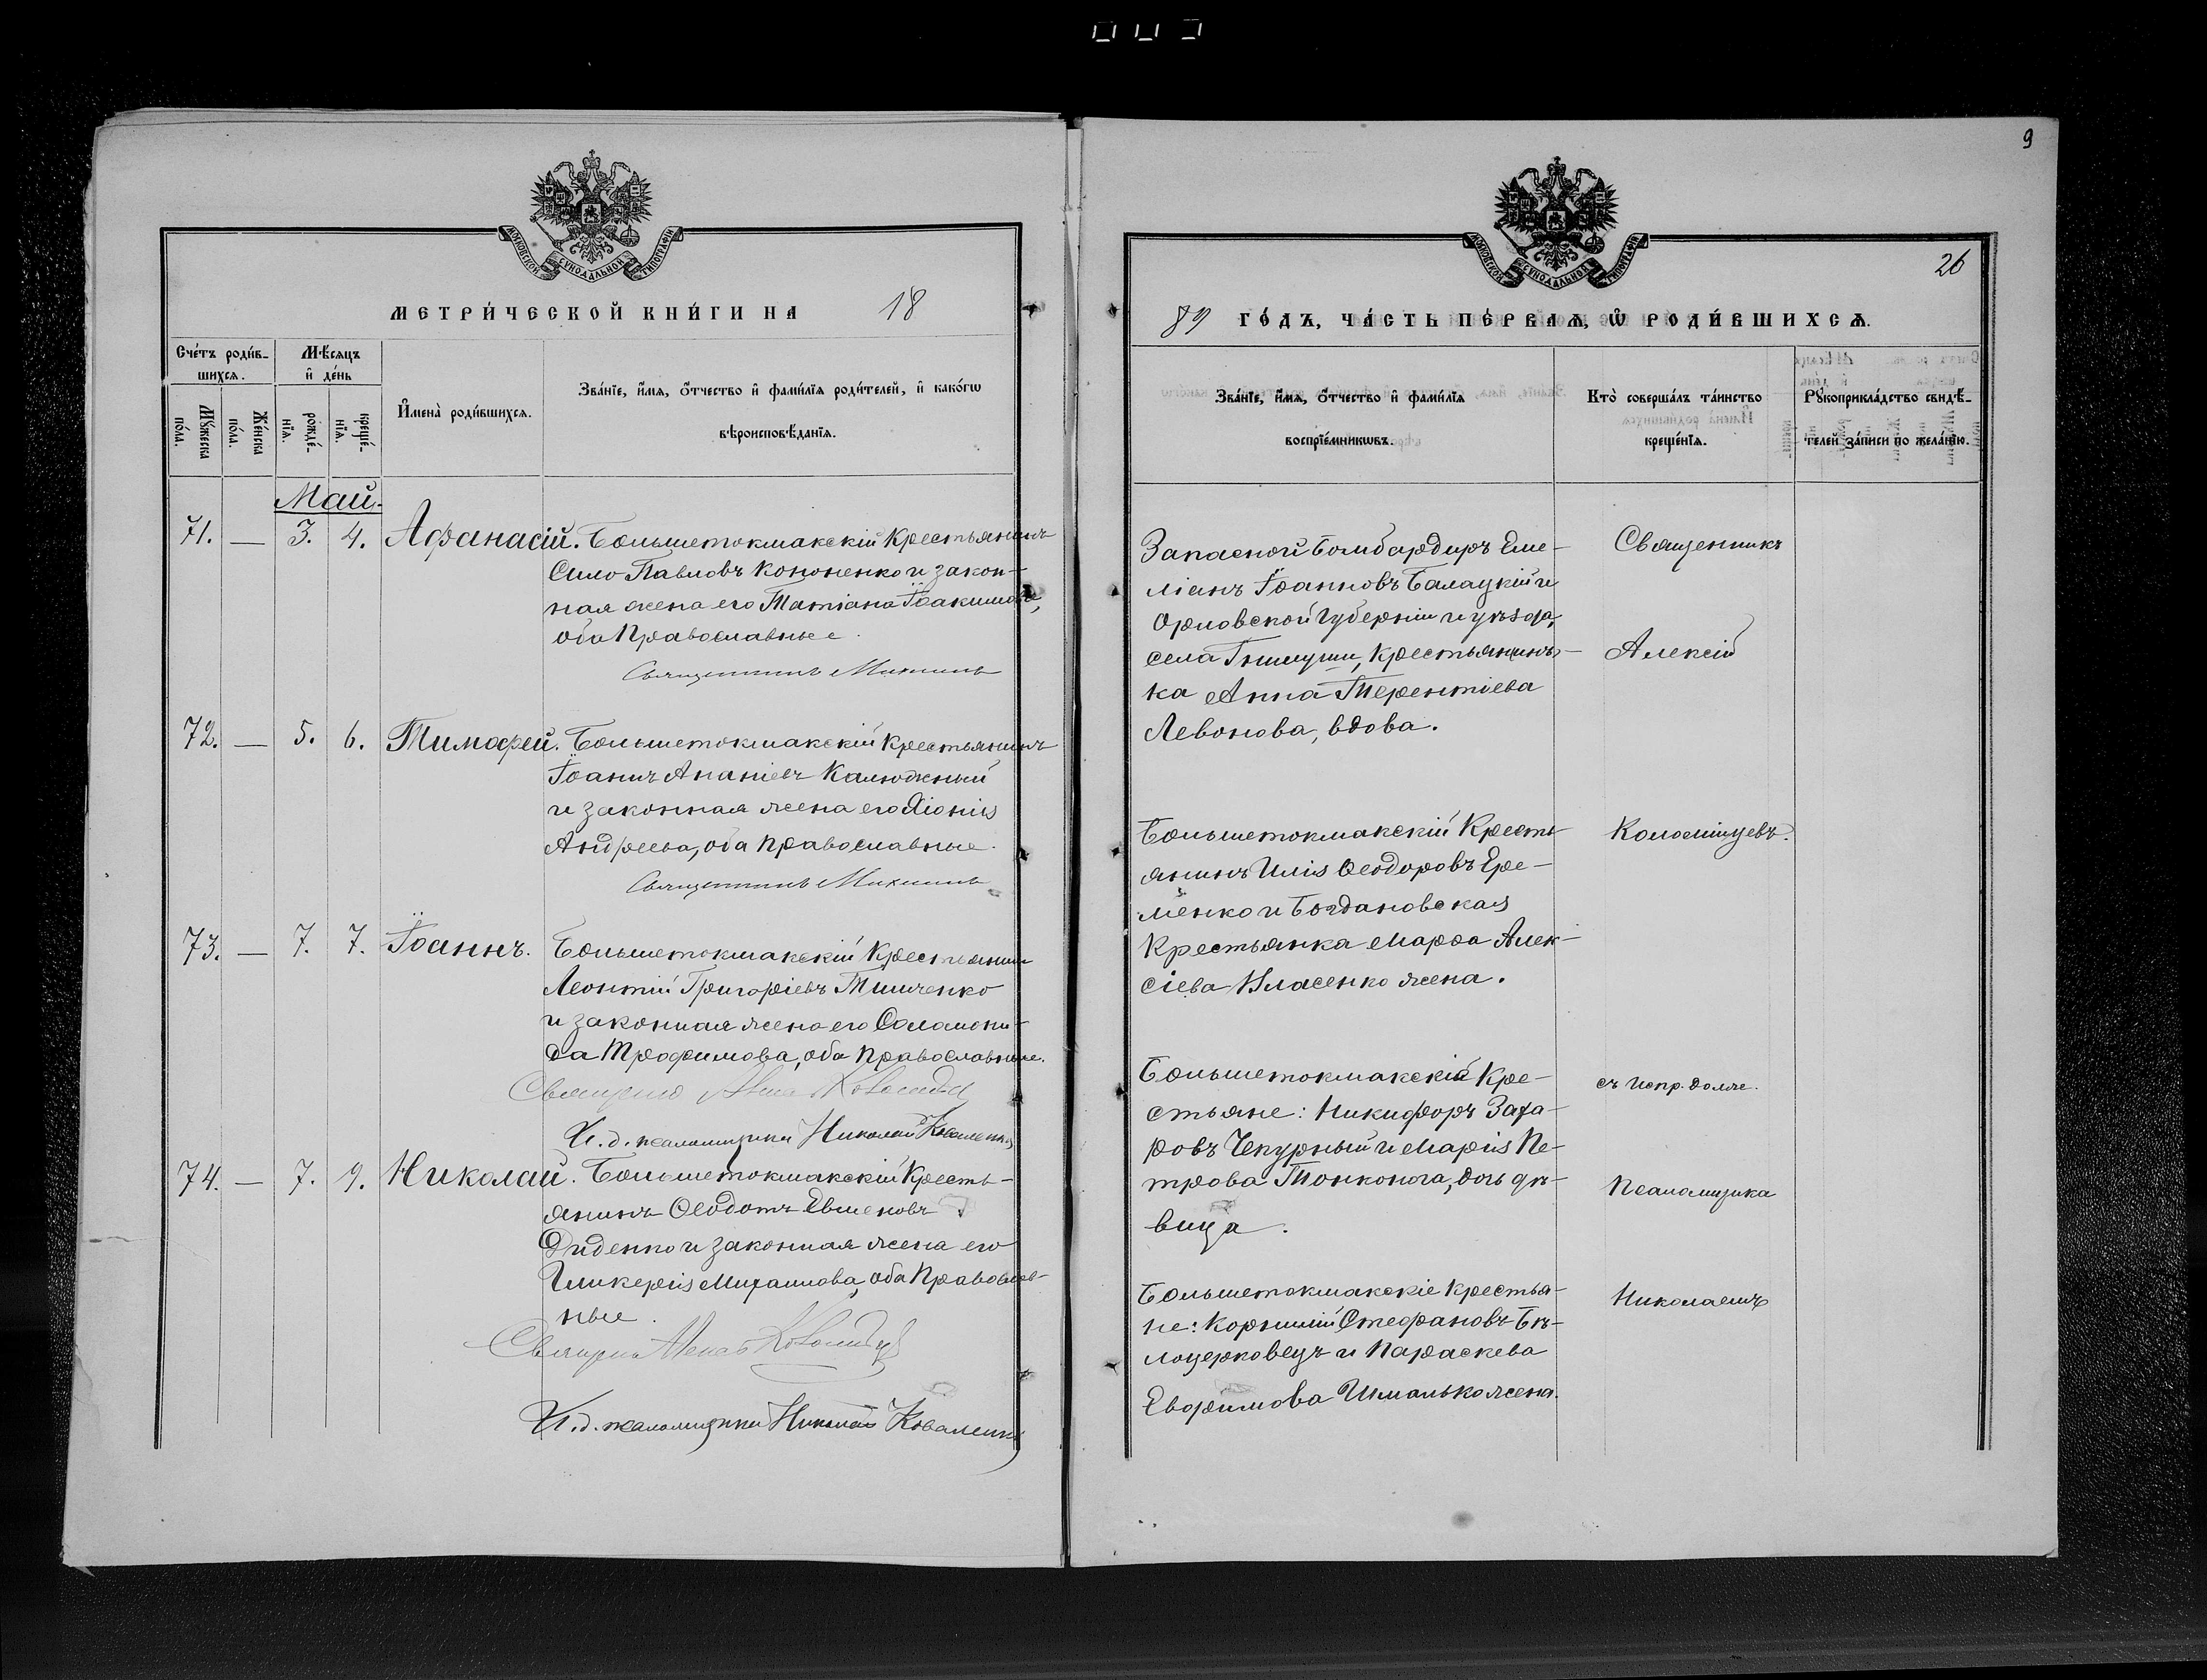 9
26
МОСКОВСКОЙ СѴНОДАЛЬНОЙ ТИПОГРАФІИ
МЕТРИ́ЧЕСКОЙ КНИ́ГИ НА 18
Сче́тъ роди́в-
шихсѧ.
Мѣ́сѧцъ
и҆ де́нь
Мꙋ́жеска по́ла.
Же́нска по́ла.
рожде́-
нїѧ.
креще́-
нїѧ.
И҆мена̀ роди́вшихсѧ.
Зва́нїе, и҆́мѧ, ѻ҆́тчество и҆ фами́лїѧ роди́телей, и҆ како́гѡ
вѣроисповѣ́данїѧ.
Май.
71. — 3. 4. Афанасій. Большетокмакскій Крестьянинъ
Сило Павловъ Кононенко и закон-
ная жена его Татіана Іоакимова,
оба Православные.
Священникъ
72. — 5. 6. Тимофей. Большетокмакскій Крестьянинъ
Іоаннъ Ананіевъ Калюжный
и законная жена его Хіонія
Андреева, оба православные.
Священникъ
73. — 7. 7. Іоаннъ. Большетокмакскій Крестьянинъ
Леонтій Григоріевъ Тимченко
и законная жена его Соломони-
да Трофимова, оба православные.
И.д. псаломщика Николай Коваленко
74. — 7. 9. Николай. Большетокмакскій Кресть-
янинъ Ѳеодотъ Евменовъ
Диденко и законная жена его
Гликерія Михаилова, оба Православ-
ные.
И.д. псаломщика Николай Коваленко
МОСКОВСКОЙ СѴНОДАЛЬНОЙ ТИПОГРАФІИ
89 ГО́ДЪ, ЧА́СТЬ ПЕ́РВАѦ, Ѡ҆ РОДИ́ВШИХСѦ.
Зва́нїе, и҆́мѧ, ѻ҆́тчество и҆ фами́лїѧ
воспрїе́мникѡвъ.
Кто̀ соверша́лъ та́инство
креще́нїѧ.
Рꙋкоприкла́дство свидѣ́-
телей за́писи по жела́нїю.
Запасной Бомбардиръ Еме-
ліанъ Іоанновъ Балацкій и
Орловской Губерніи и уѣзда,
села Гнилуши, Крестьянинъ-
ка Анна Терентіева
Левонова, вдова.
Большетокмакскій Кресть-
янинъ Илія Ѳеодоровъ Ере-
менко и Богдановская
Крестьянка Марѳа Алек-
сіева Власенко жена.
Большетокмакскій Кре-
стьяне: Никифоръ Заха-
ровъ Чекурный и Марія Пе-
трова Тонконога, дочь дѣ-
вица.
Большетокмакскіе Крестья-
не: Корнилій Стефановъ Бѣ-
лоцерковецъ и Параскева
Евфимова Шмалько жена.
Священникъ
Алексій
Коломійцевъ.
съ испр. долж.
Псаломщика
Николаемъ